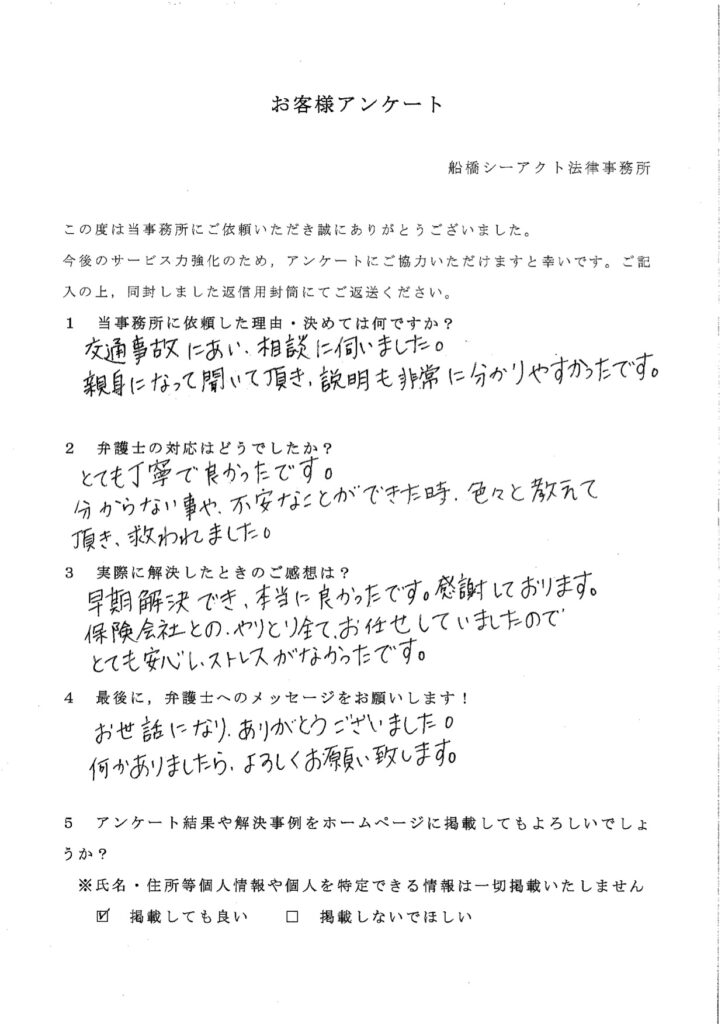 お客様アンケート
船橋シーアクト法律事務所
この度は当事務所にご依頼いただき誠にありがとうございました。
今後のサービス力強化のため，アンケートにご協力いただけますと幸いです。ご記
入の上，同封しました返信用封筒にてご返送ください。
1　当事務所に依頼した理由・決めては何ですか？
交通事故にあい、相談に伺いました。
親身になって聞いて頂き、説明も非常に分かりやすかったです。
2　弁護士の対応はどうでしたか？
とても丁寧で良かったです。
分からない事や、不安なことができた時、色々と教えて
頂き、救われました。
3　実際に解決したときのご感想は？
早期解決でき、本当に良かったです。感謝しております。
保険会社とのやりとり全て、お任せしていましたので
とても安心し、ストレスがなかったです。
4　最後に，弁護士へのメッセージをお願いします！
お世話になり、ありがとうございました。
何かありましたら、よろしくお願い致します。
5　アンケート結果や解決事例をホームページに掲載してもよろしいでしょ
うか？
※氏名・住所等個人情報や個人を特定できる情報は一切掲載いたしません
☑　掲載しても良い　　□　掲載しないでほしい